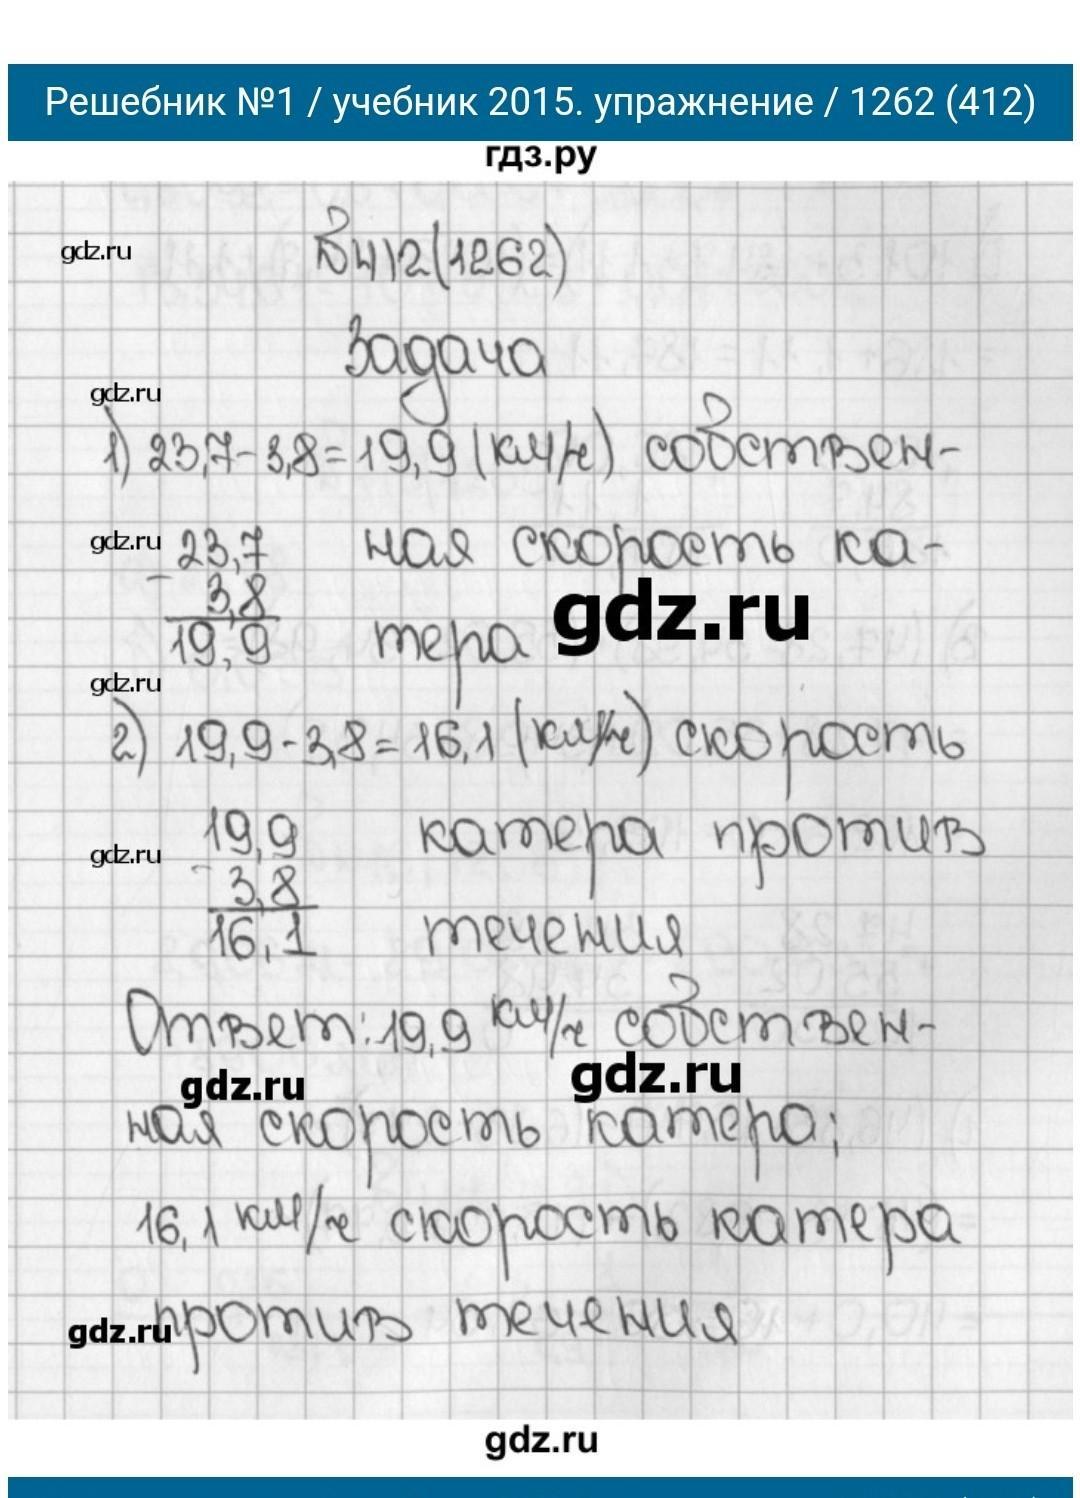 Решебник №1 / учебник 2015. упражнение / 1262 (412)
гдз.ру
gdz.ru
№412(1262)
Задача
gdz.ru
1) 23,7-3,8=19,9 (км/ч) собствен-
gdz.ru 23,7 ная скорость ка-
- 3,8
gdz.ru
19,9 тера
gdz.ru
2) 19,9-3,8=16,1 (км/ч) скорость
19,9 катера против
gdz.ru
- 3,8
16,1 течения
Ответ: 19,9 км/ч собствен-
gdz.ru gdz.ru
ная скорость катера;
16,1 км/ч скорость катера
gdz.ru против течения
gdz.ru